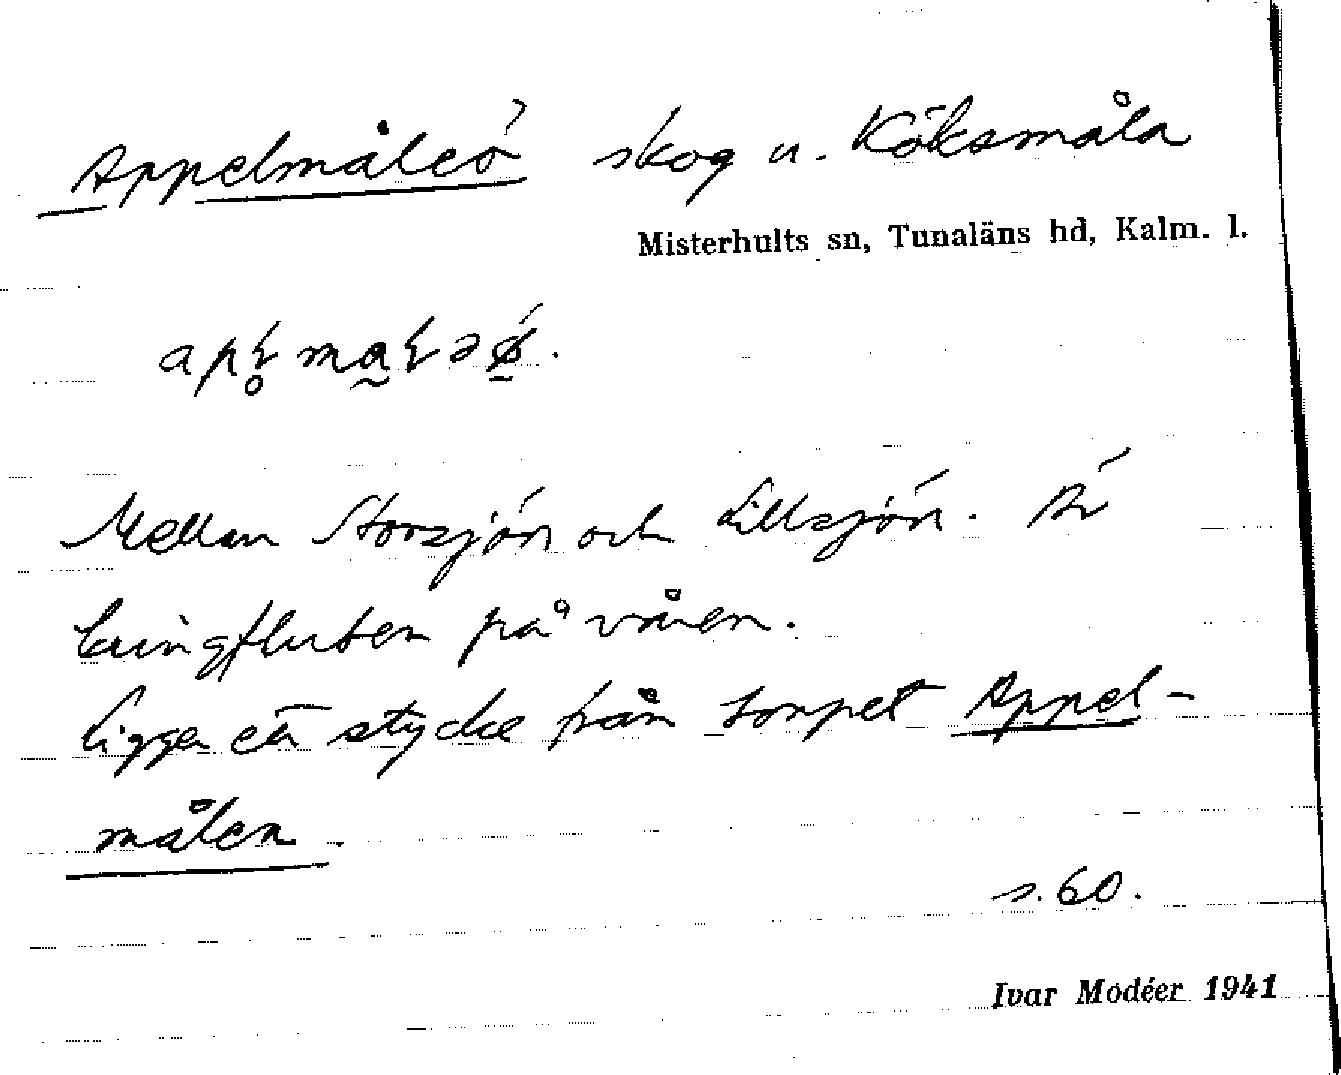 Appelmåleö skog u. Köksmåla
Misterhults sn, Tunaläns hd, Kalm. l.
Mellan Storsjön och Lillsjön. Är
kringfluten på våren.
Ligger ett stycke från torpet Appel-
målen.
s. 60.
Ivar Modéer 1941